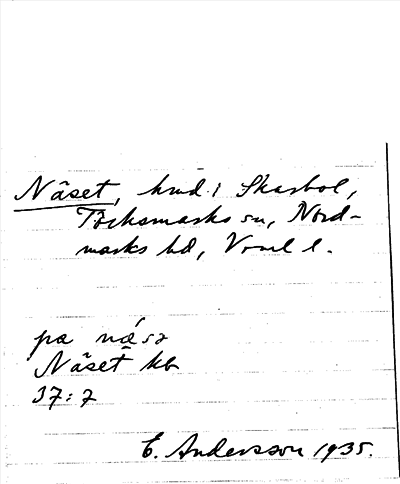 Näset, hmd. i Skarbol,
Töcksmarks sn, Nord-
marks hd, Vrml l.
pa
Näset kb
37:7
E. Andersson 1935.